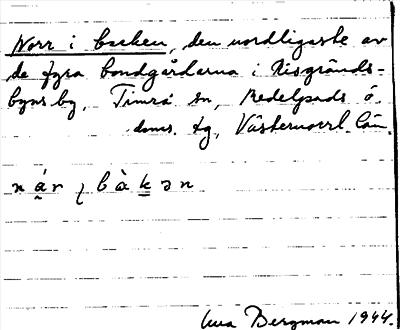 Norr i backen, den nordligaste av
de fyra bondgårdarna i Risgrunds-
byns by, Timrå sn, Medelpads ö.
doms. tg, Västernorrl. län.
Bergman 1944.